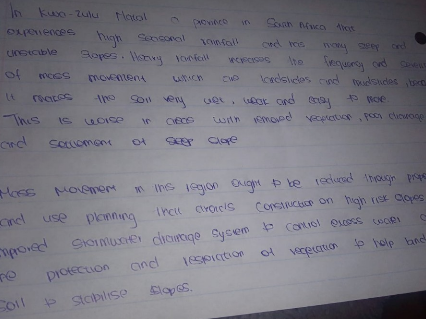 In Kwa-Zulu Natal a province in South Africa that
experiences high seasonal rainfall and has many steep and
unstable slopes, Heavy rainfall increases the frequency and
of mass movement which are landslides and mudslides,
it makes the soil very wet, weak and easy to move
This is worse in areas with removed vegetation, poor drainage
and settlement of steep slope
Mass Movement in this region ought to be reduced through
and use planning that avoids construction on high risk slopes
improved stormwater drainage system to control excess water
protection and restoration of vegetation to help bind
soil to stabilise slopes.